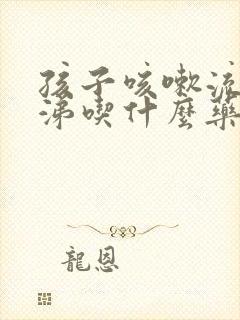 孩子咳嗽流
涕喫什麽藥
龍恩